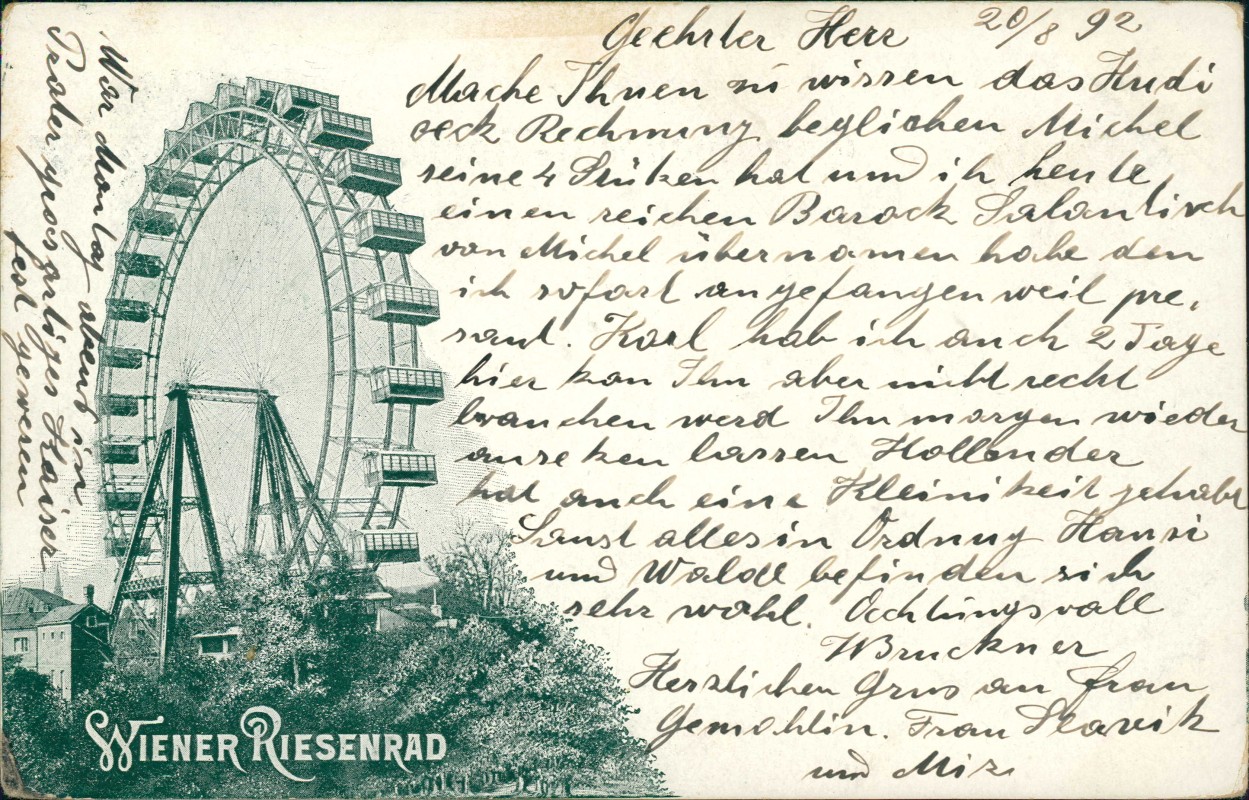 Geehrter Herr 20/8 92
Mache Ihnen zu wissen das Kudi
seck Rechnung beglichen Michel
seine 4 Stüken hat und ich heute
einen reichen Barock Salontisch
von Michel übernomen habe den
ich sofort angefangen weil pre,
sant. Karl hab ich auch 2 Tage
hier kan Ihn aber nicht recht
brauchen werd Ihn morgen wieder
auseken lassen Hollender
hat auch eine Kleinikeit gehabt
Sonst alles in Ordnug Hansi
und Waldl befinden sich
sehr wohl. Achtungsvoll
WBruckner
Herzlichen Grus an Frau
Gemahlin. Frau Slavik
und Miz
War Montag abend in
Prater grosartiges Kaiser
fest gewesen
WIENER RIESENRAD